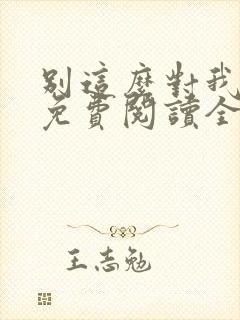 別這麼對我
免費閱讀全
王志勉